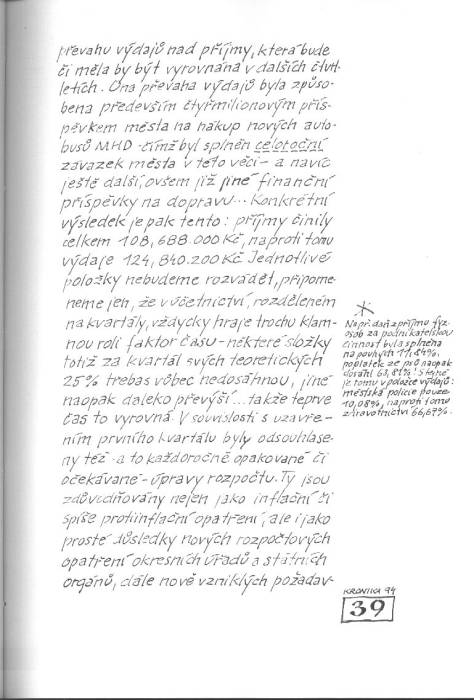 převahu výdajů nad příjmy, která bude
či měla by být vyrovnána v dalších čtvrt-
letích. Ona převaha výdajů byla způso-
bena především čtyřmilionovým přís-
pěvkem města na nákup nových auto-
busů MHD - čímž byl splněn celoroční
závazek města v této věci - a navíc
ještě další, ovšem již jiné finanční
příspěvky na dopravu... Konkrétní
výsledek je pak tento: příjmy činily
celkem 108,688.000 Kč, naproti tomu
výdaje 124,840.200 Kč. Jednotlivé
položky nebudeme rozvádět, připome-
neme jen, že v účetnictví, rozděleném
na kvartály, vždycky hraje trochu klam-
nou roli faktor času - některé složky
totiž za kvartál svých teoretických
25% třebas vůbec nedosáhnou, jiné
naopak daleko převýší... takže teprve
čas to vyrovná. V souvislosti s uzavře-
ním prvního kvartálu byly odsouhlase-
ny též - a to každoročně opakované či
očekávané - úpravy rozpočtu. Ty jsou
zdůvodňovány nejen jako inflační či
spíše protiinflační opatření, ale i jako
prosté důsledky nových rozpočtových
opatření okresních úřadů a státních
orgánů, dále nově vzniklých požadav-
*
Např. daň z příjmu fyz.
osob za podnikatelskou
činnost byla splněna
na pouhých 11,84%,
poplatek ze psů naopak
dosáhl 63,81%! Stejné
je tomu v položce výdajů:
městská policie pouze
10,08%, naproti tomu
zdravotnictví 66,67%.
KRONIKA 94
39